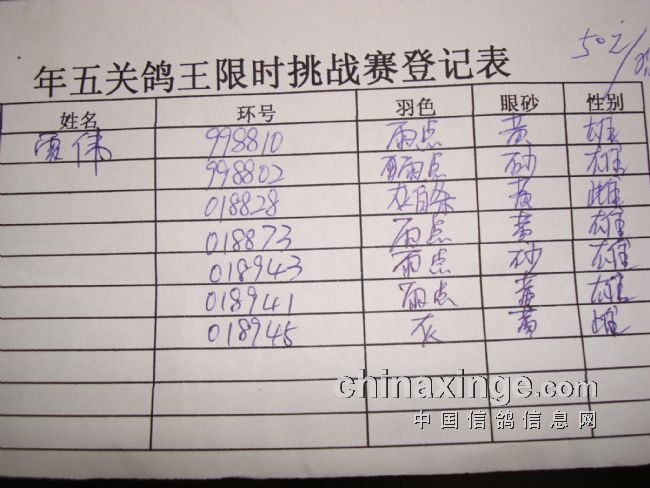 50元/
年五关鸽王限时挑战赛登记表
姓名 环号 羽色 眼砂 性别
伟 998810 雨点 黄 雄
998802 雨点 砂 雄
018828 灰白条 黄 雌
018873 雨点 黄 雄
018943 雨点 砂 雄
018941 雨点 黄 雄
018945 灰 黄 雌
chinaxinge.com
中国信鸽信息网